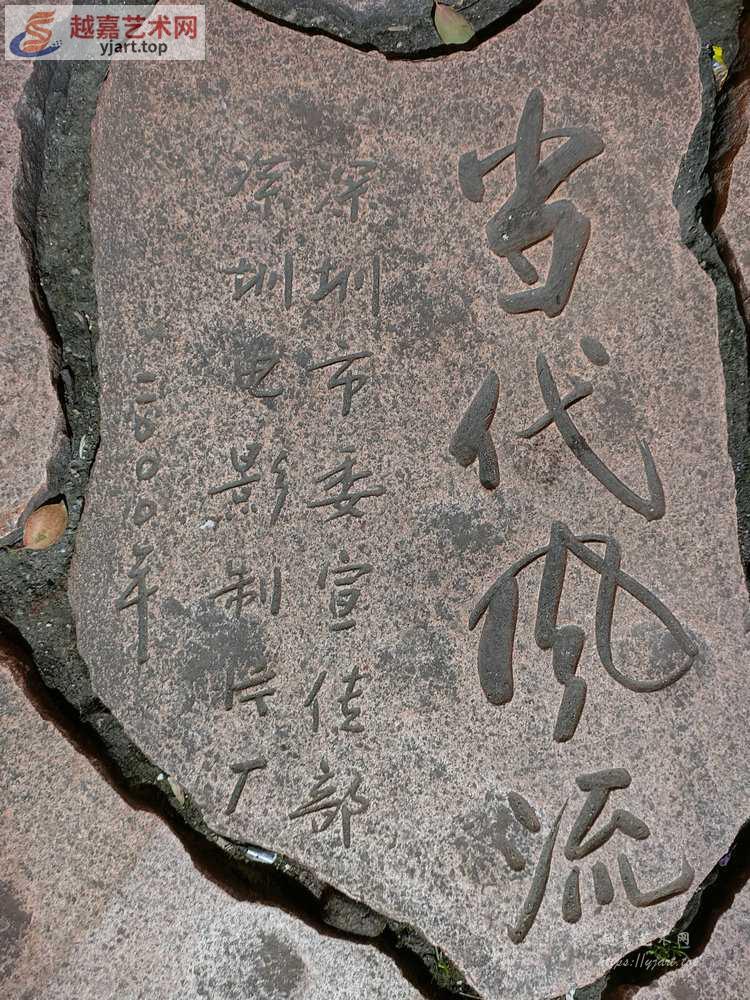 越嘉艺术网
yjart.top
当代风流
深圳市委宣传部
深圳电影制片厂
二〇〇〇年